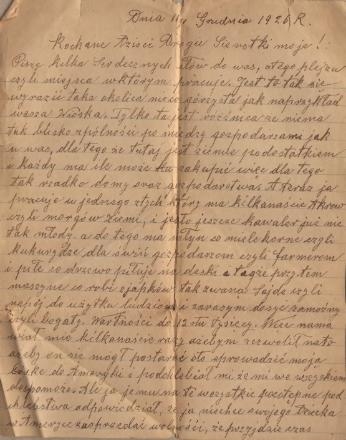 Dnia 11go Grudnia 1926 R.
Kochane dzieci Drogie Sirotki moje!
Piszę kilka serdecznych słów do was, z tego plejzu
czyli miejsca w którym pracuje. Jest to tak nie
wyrazić taka okolica nieco górzysta jak naprzykład
wasza Wioska. Tylko ta jest rożnica że niema
tak blisko spólności po między gospodarzami jak
u nas, dla tego że tutaj jest ziemie podostatkiem
i każdy ma ile może zakupić więc dla tego
tak rzadko domy oraz gospodarstwa. A teraz ja
pracuje u jednego z tych który ma kilkanaście Akrów
czyli morgów ziemi, i jest jeszcze kawaler już nie
tak młody a do tego ma młyn co miele korne czyli
kukurydze dla świń gospodarzom czyli farmerom
i piłe co drzewo piłuje na deski a także przytem
maszyne co robi z jabłków tak zwane Sajde czyli
napój do użytku ludziom i zarazym dosyć zamożny
czyli bogaty. Wartności do 12stu tysięcy.
miał mnie kilkanaście razy ażebym zezwolił na to
ażeby on się mógł postarać oto sprowadzić moja
Córke do Ameryki i podchlebiał mi że mi we wszystkim
dopomoże. Ale ja jemu na te wszystkie podstępne pod
chlebstwa odpowiedział, że ja niechce swojego dziecka
w Ameryce zaprzedać wolności, że przyjdzie czas